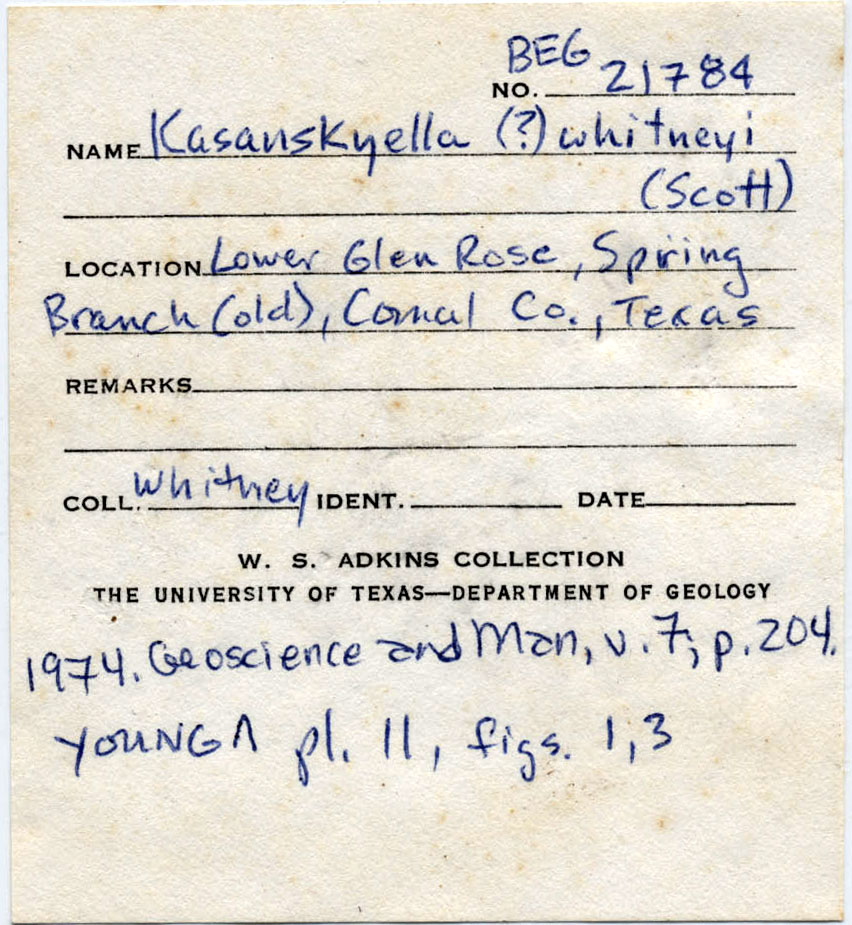 BEG
NO. 21784
NAME Kasanskyella (?) whitneyi
(Scott)
LOCATION Lower Glen Rose, Spring
Branch (old), Comal Co., Texas
REMARKS
COLL. Whitney IDENT. DATE
W. S. ADKINS COLLECTION
THE UNIVERSITY OF TEXAS—DEPARTMENT OF GEOLOGY
1974. Geoscience and Man, v. 7; p. 204.
YOUNG Λ pl. 11, figs. 1,3